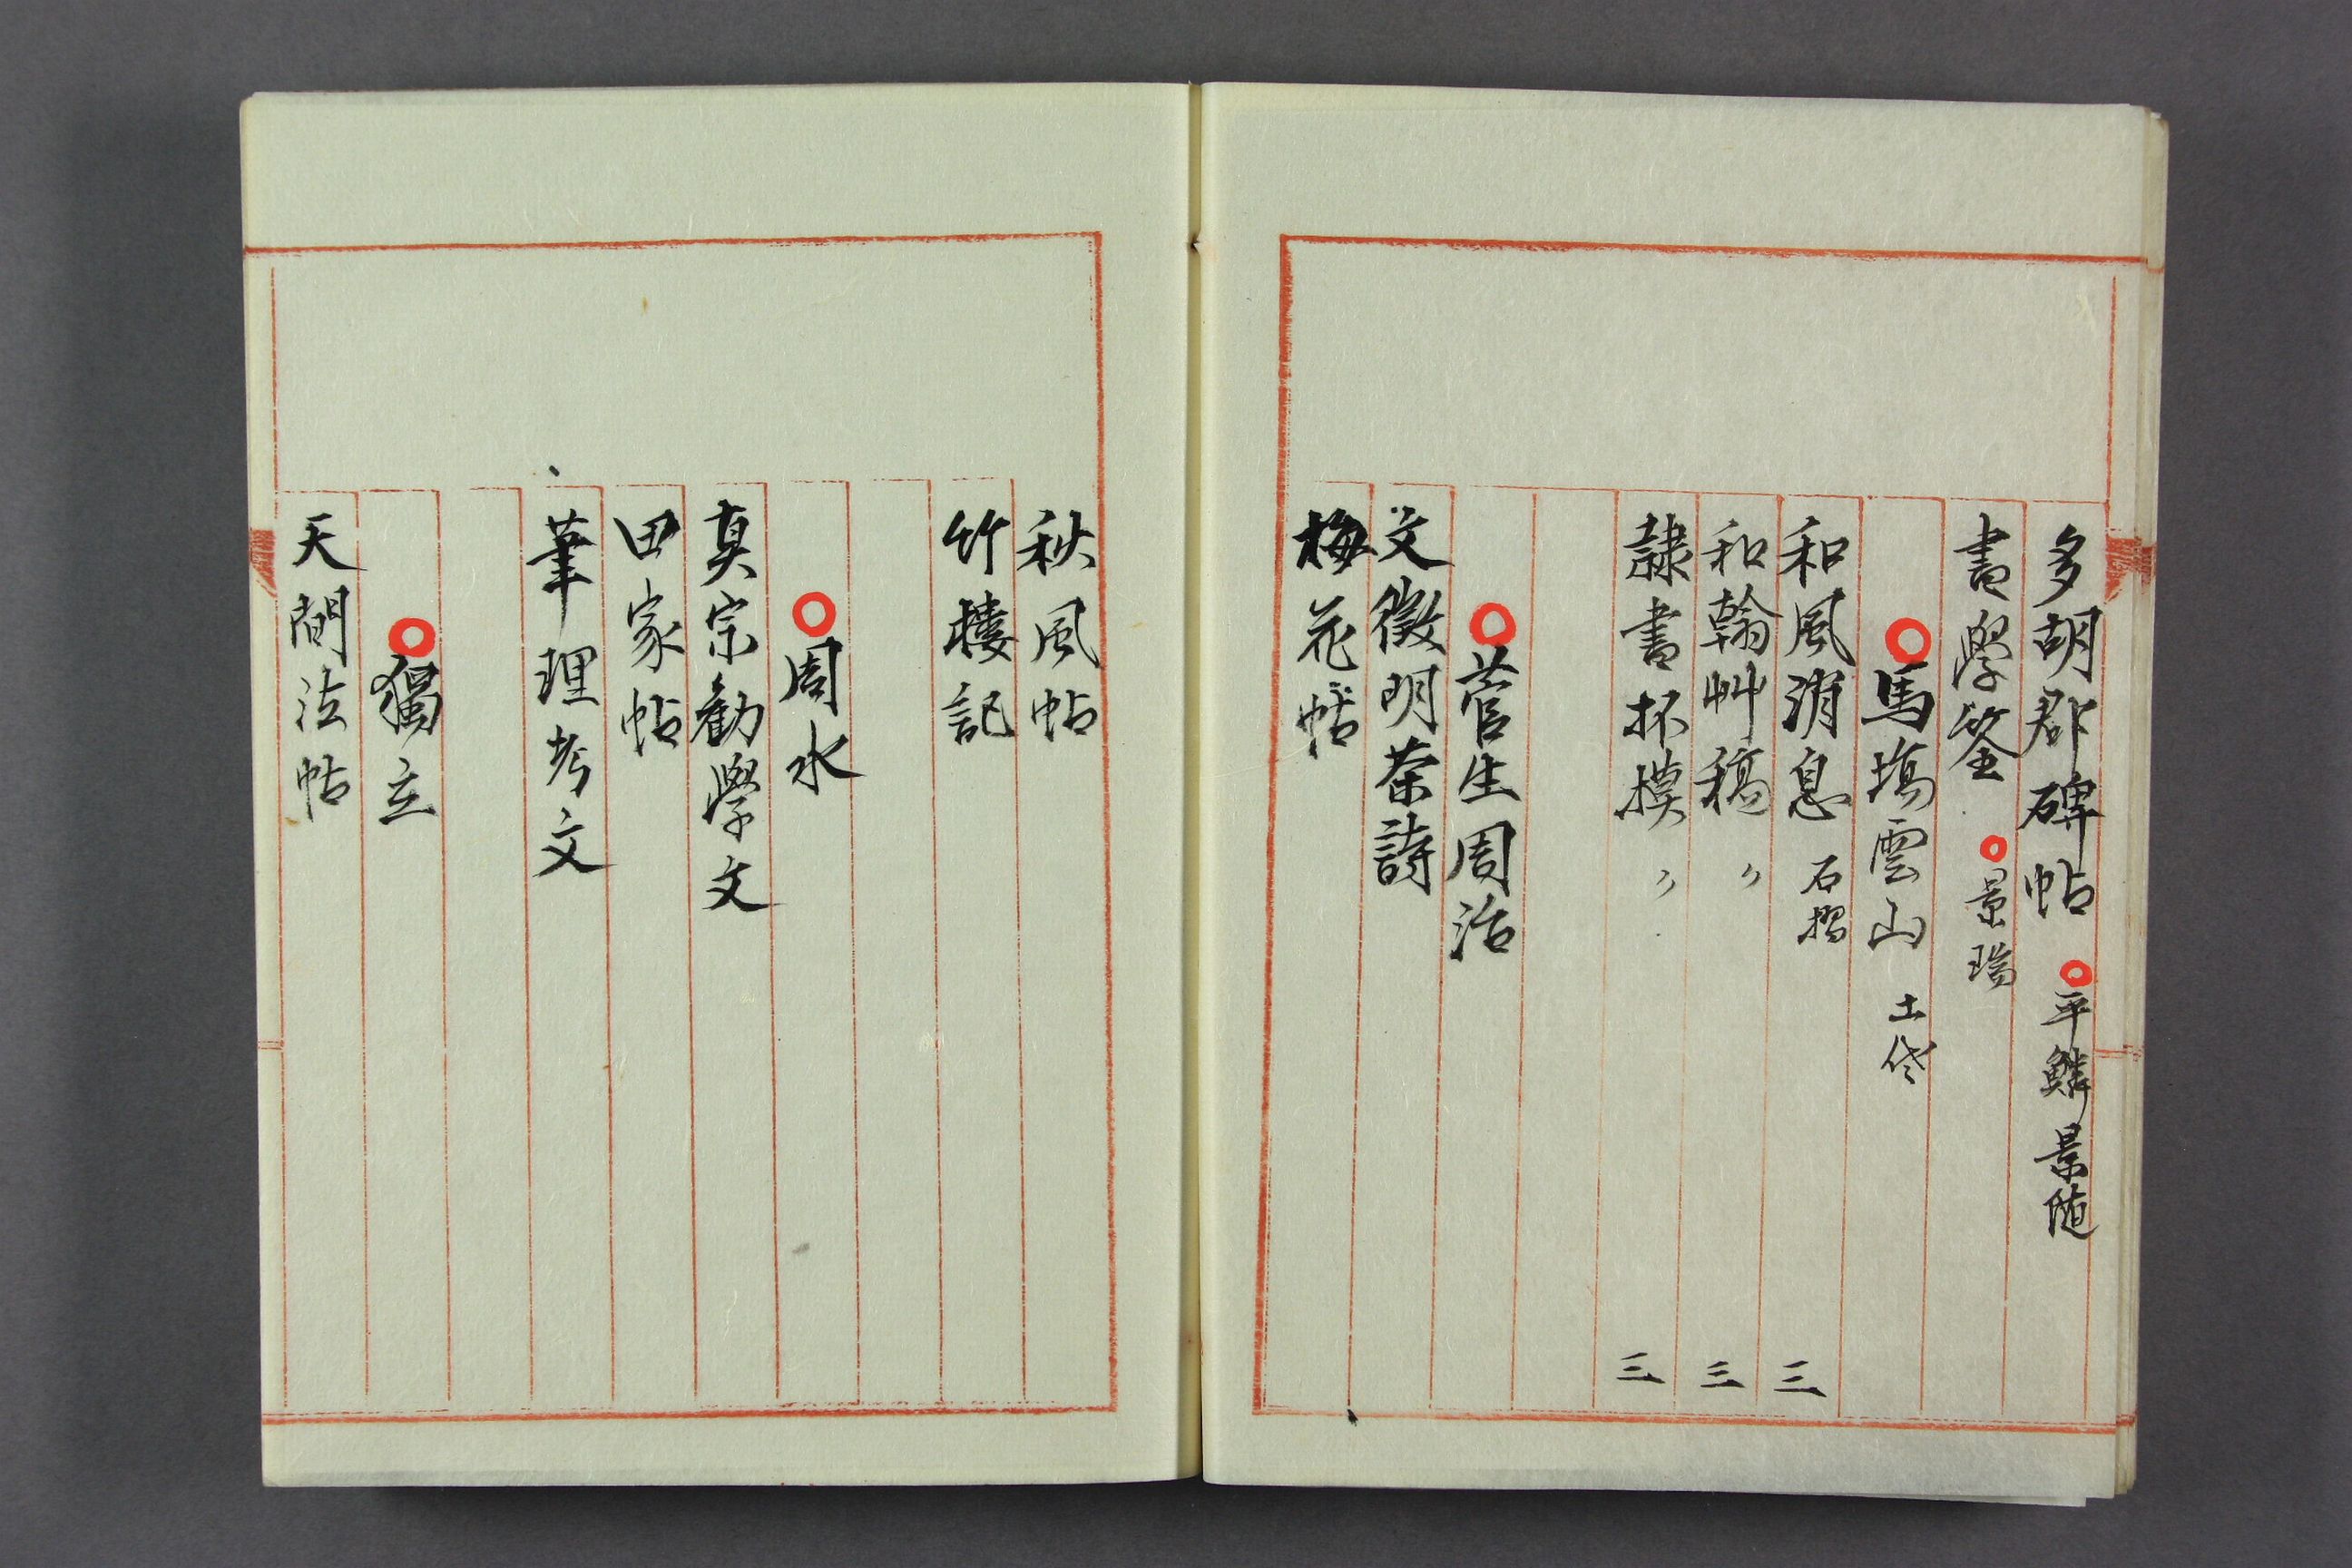 多胡郡碑帖 ○平鱗景随
書學筌 ○景瑞
○馬塲雲山 土佐
和風消息 石摺 三
和翰艸稿 〃 三
隷書杯模 〃 三
○菅生周治
文徴明茶詩
梅花帖
秋風帖
竹樓記
○周水
真宗勧學文
田家帖
筆理考文
○獨立
天間法帖